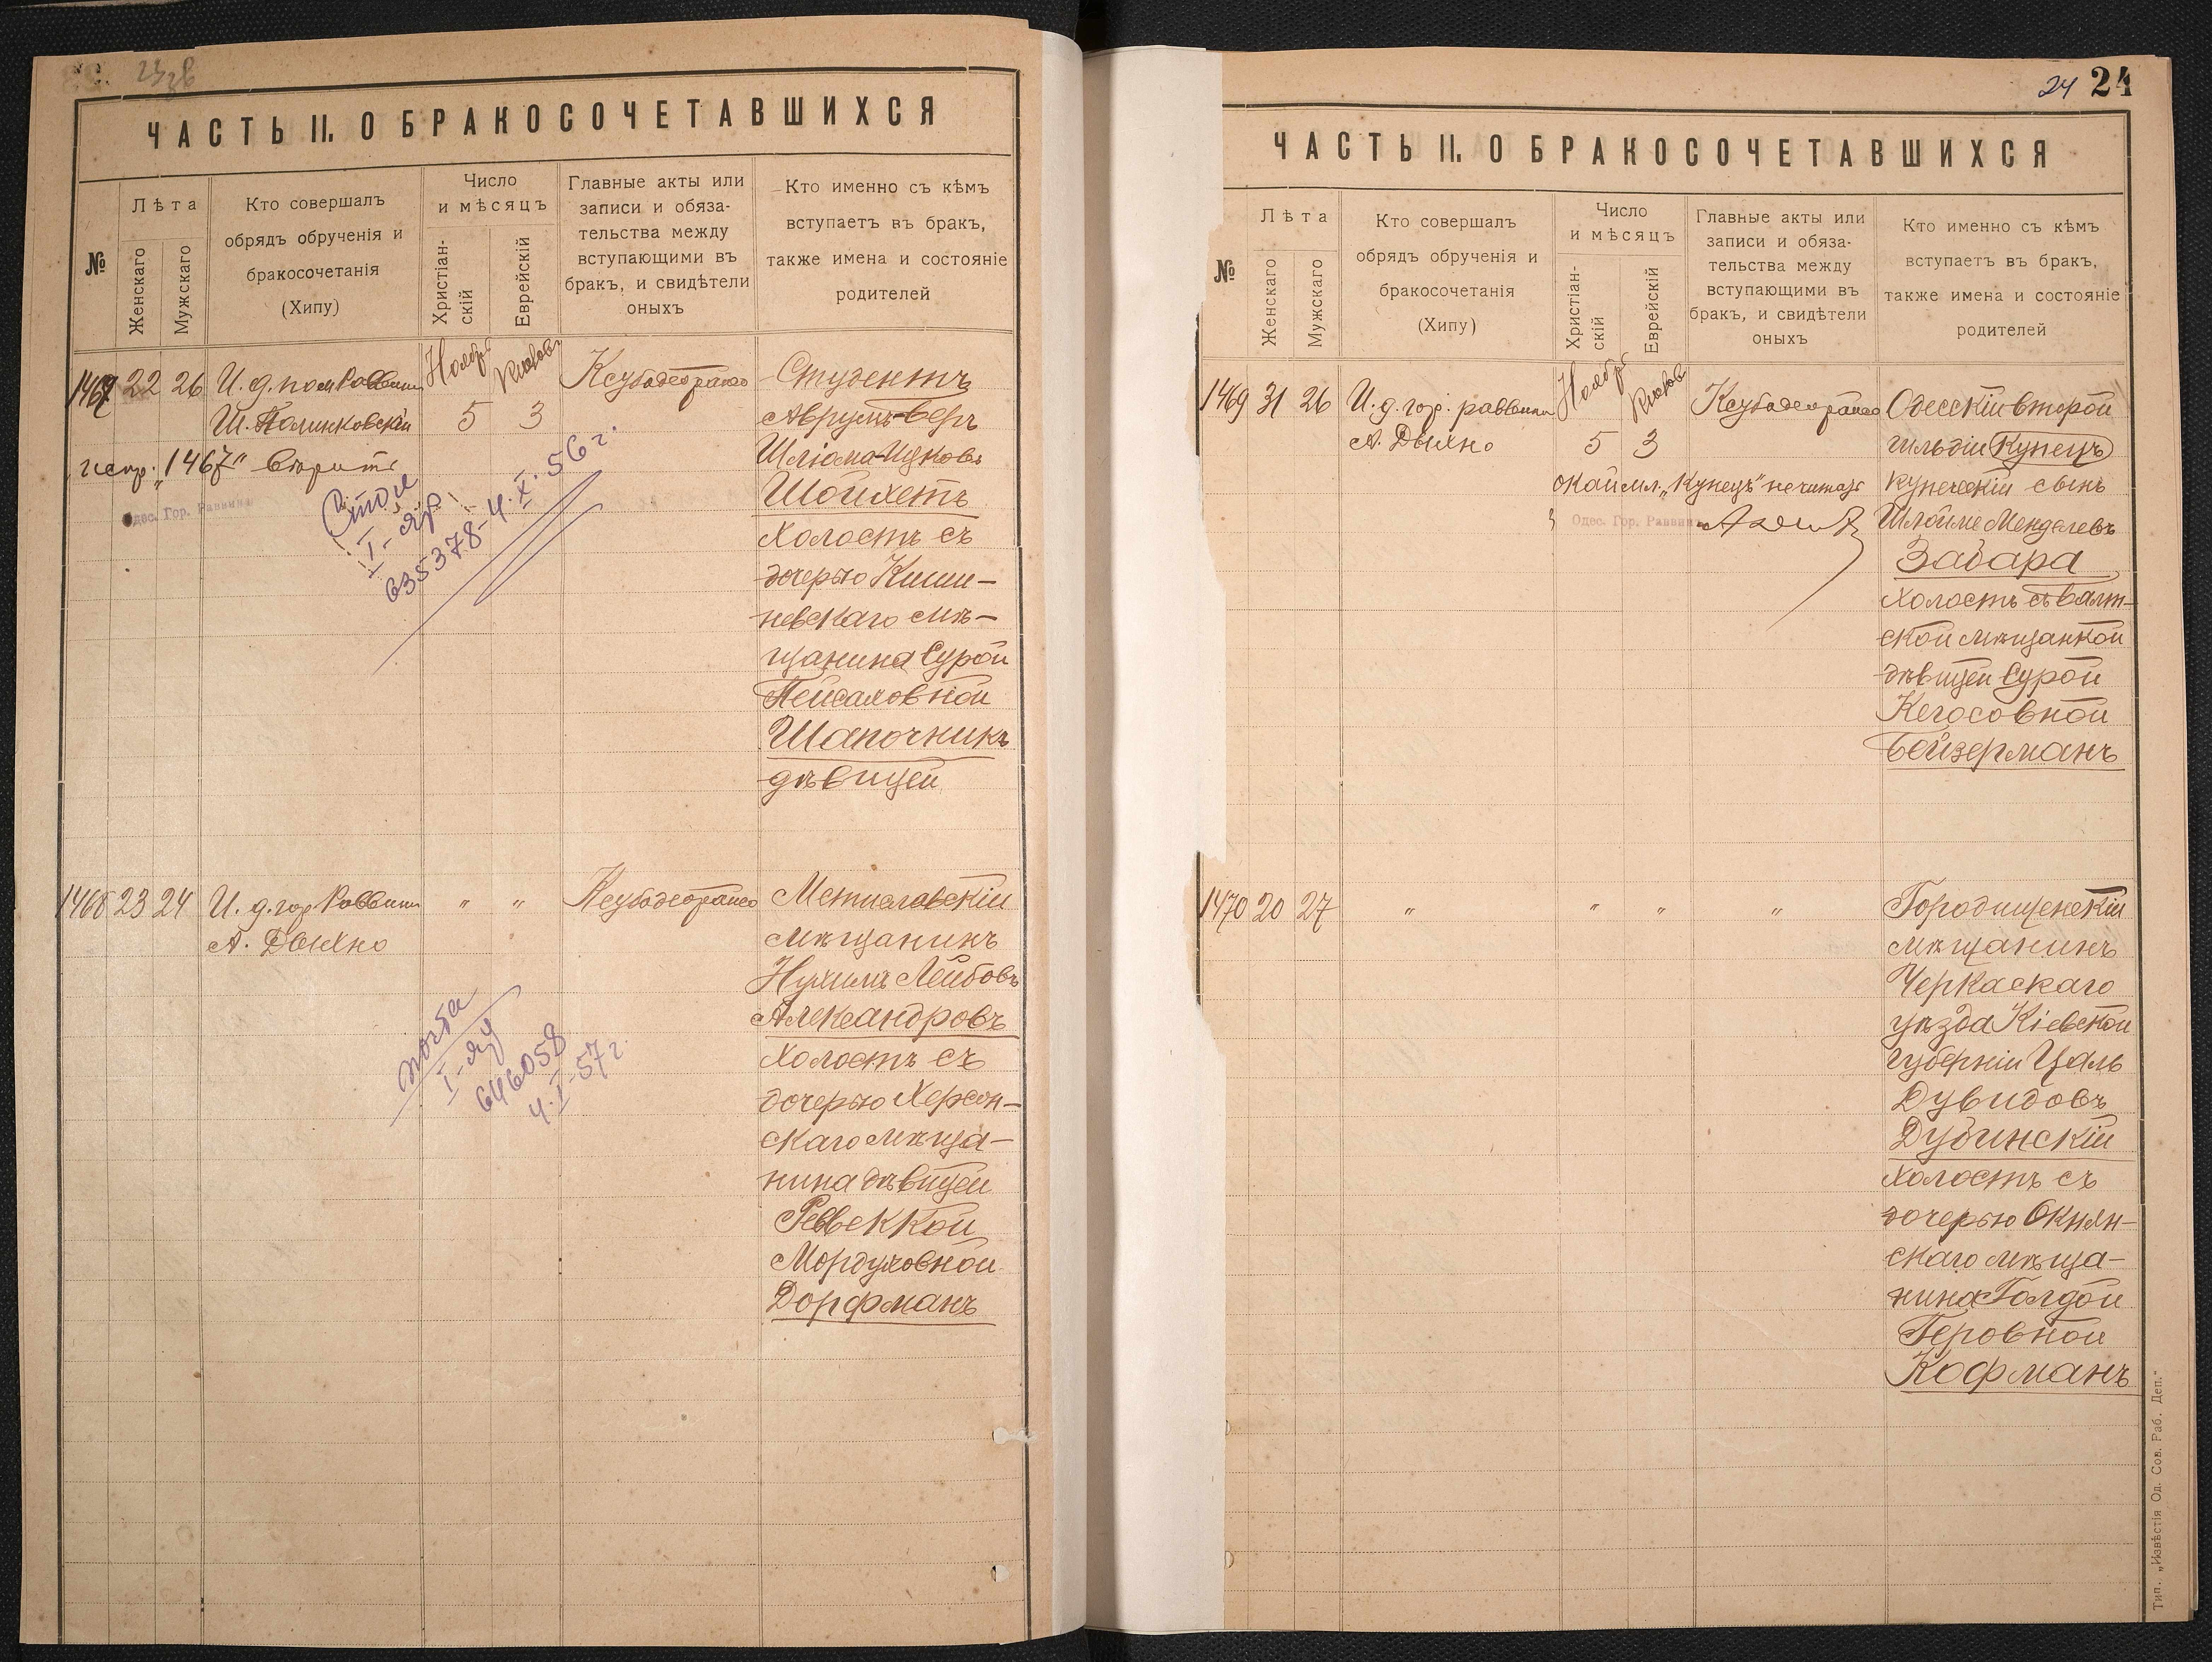 ЧАСТЬ II. О БРАКОСОЧЕТАВШИХСЯ
№
Лѣта
Женскаго
Мужскаго
Кто совершалъ
обрядъ обрученія и
бракосочетанія
(Хипу)
Число
и мѣсяцъ
Христіан-
скій
Еврейскій
Главные акты или
записи и обяза-
тельства между
вступающими въ
бракъ, и свидѣтели
оныхъ
Кто именно съ кѣмъ
вступаетъ въ бракъ,
также имена и состояніе
родителей
1467 22 26
И. д. пом Раввина
Ш. Полинковскій
Ноября
5
3
испр. „1467" вѣрить
Одес. Гор. Раввинъ
Стол
635378-4.X.56 г.
Студентъ
Аврумъ-Беръ
Шліома-Ицковъ
Шойхетъ
холостъ съ
дочерью Киши-
невскаго мѣ-
щанина Сурой
Пейсаховной
Шапочникъ
дѣвицей
1468 23 24
И. д. гор Раввина
А. Дыхно
" "
почта
646058
4.I-57 г.
Мстиславскій
мѣщанинъ
Нухимъ Лейбовъ
Александровъ
холостъ съ
дочерью Херсон-
скаго мѣща-
нина дѣвицей
Реввеккой
Мордуховной
Дорфманъ
24 24
ЧАСТЬ II. О БРАКОСОЧЕТАВШИХСЯ
№
Лѣта
Женскаго
Мужскаго
Кто совершалъ
обрядъ обрученія и
бракосочетанія
(Хипу)
Число
и мѣсяцъ
Христіан-
скій
Еврейскій
Главные акты или
записи и обяза-
тельства между
вступающими въ
бракъ, и свидѣтели
оныхъ
Кто именно съ кѣмъ
вступаетъ въ бракъ,
также имена и состояніе
родителей
1469 31 26
И. д. гор. раввина
А. Дыхно
Ноября
5
3
окаймл. „Купецъ" не читать
Одес. Гор. Раввинъ
Одесскій второй
гильдіи Купецъ
купеческій сынъ
Шлойме Менделевъ
Забара
холостъ съ Балт-
ской мѣщанкой
дѣвицей Сурой
Кегосовной
Бейзерманъ
1470 20 27
" " " "
Городищенскій
мѣщанинъ
Черкаскаго
уѣзда Кіевской
губерніи Цаль
Дувидовъ
Дубинскій
холостъ съ
дочерью Окнян-
скаго мѣща-
нина Голдой
Геровной
Кофманъ
Тип. „Извѣстія Од. Сов. Раб. Деп."